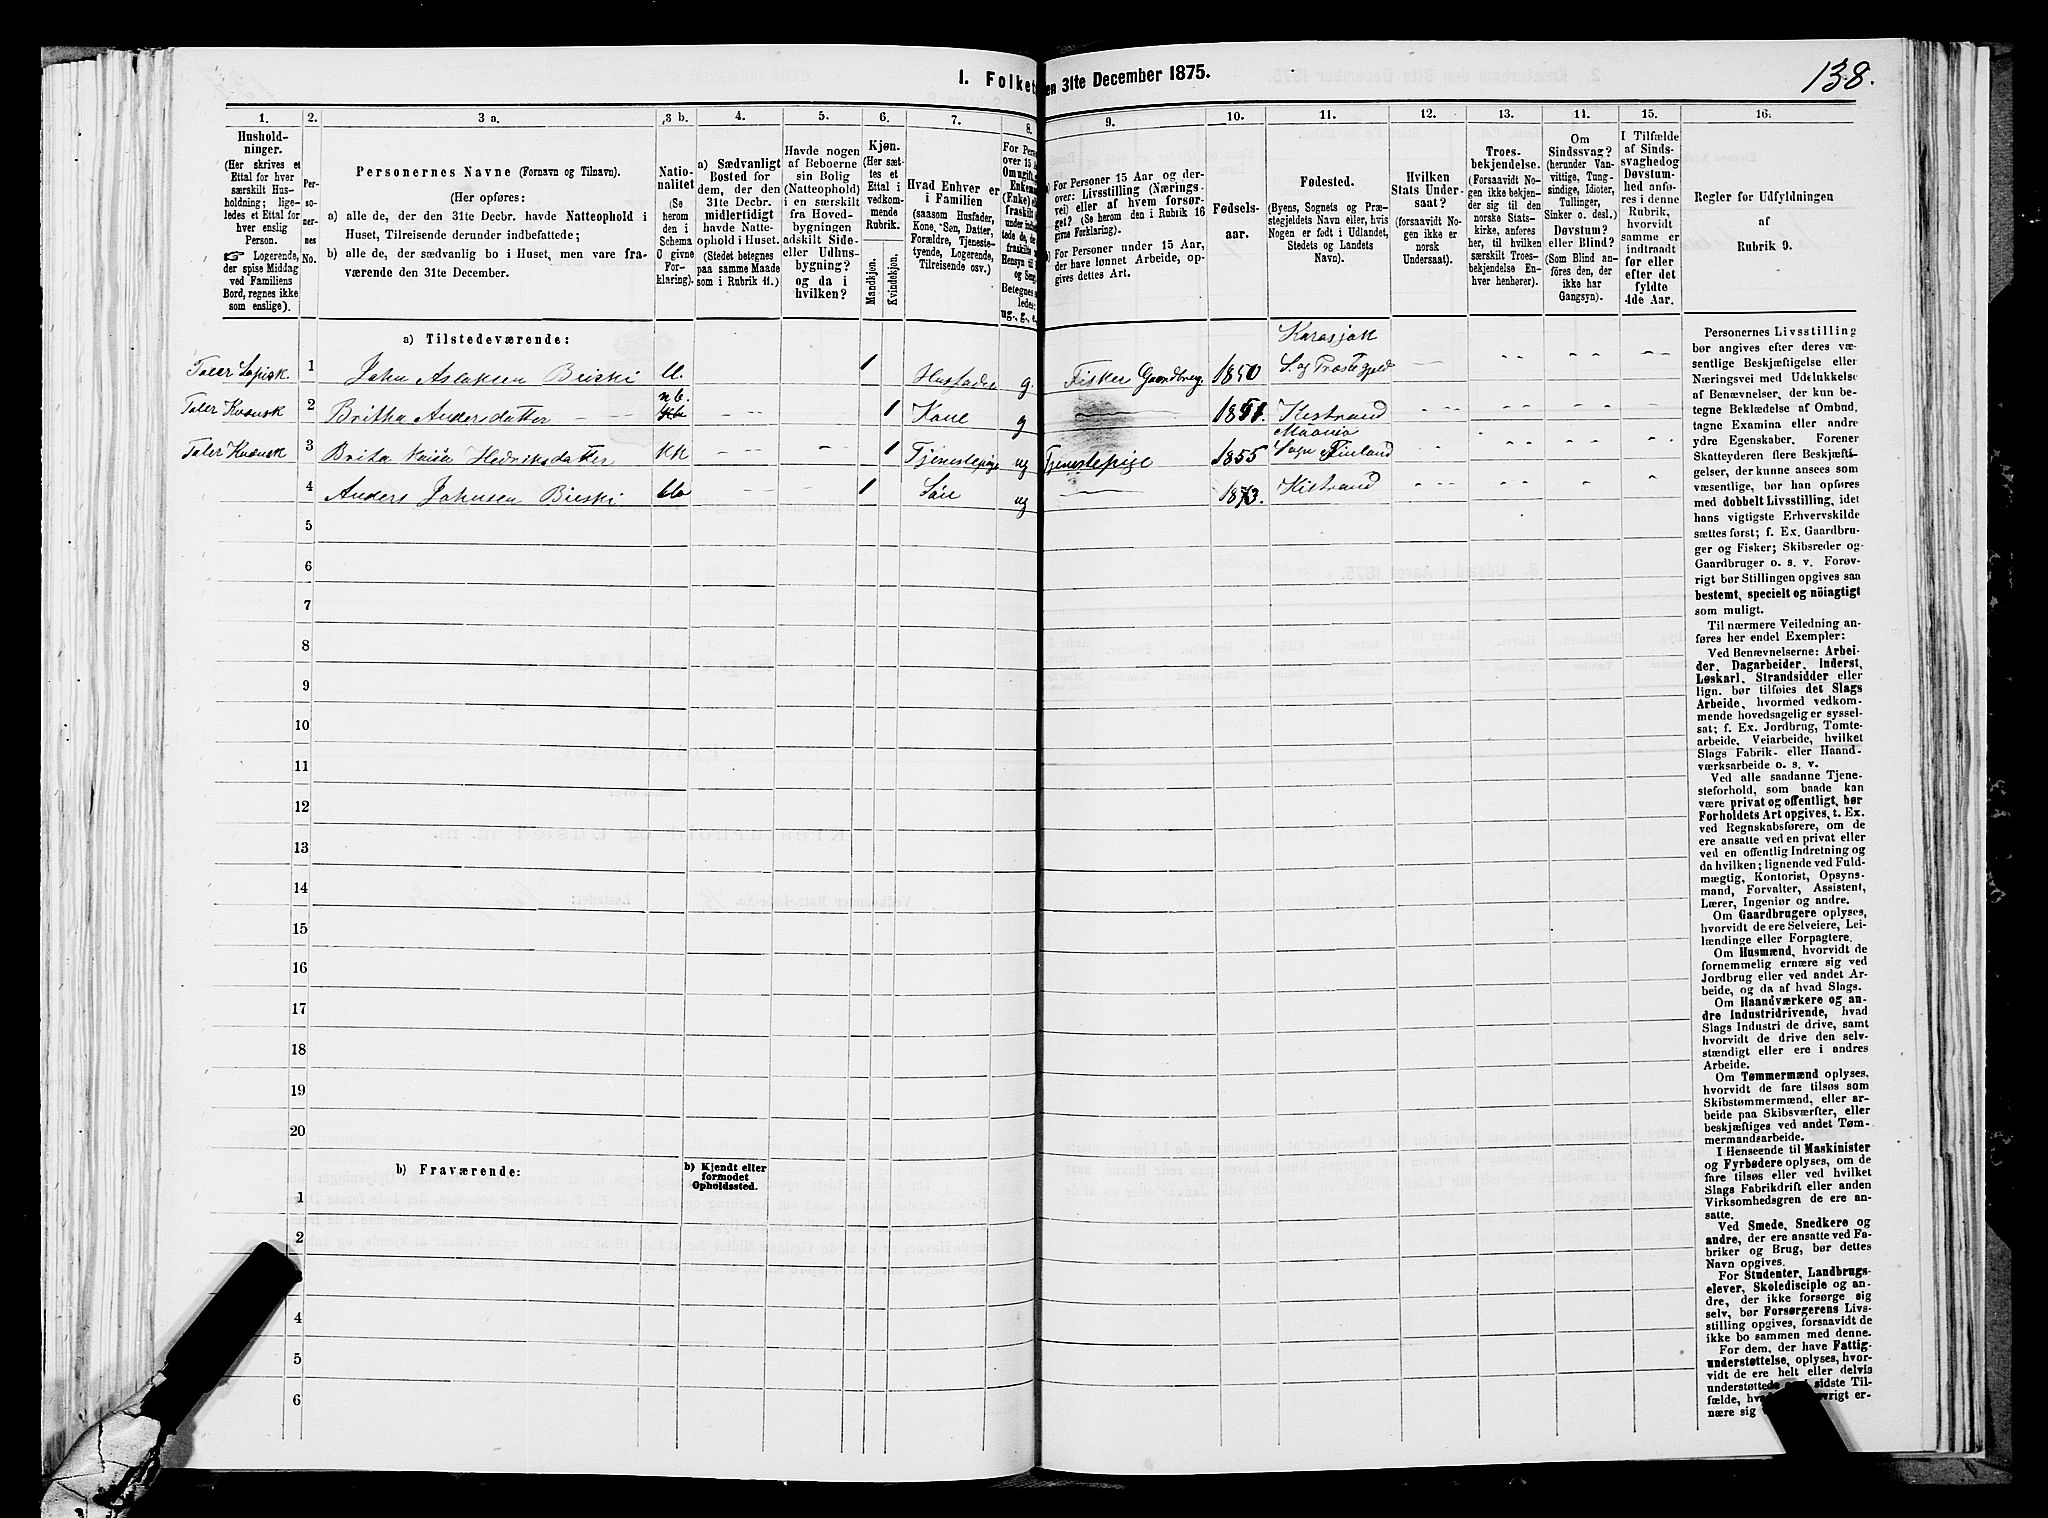 138.
1. Folket
en 31te December 1875.
1. 2. 3 a. 3 b. 4. 5. 6. 7. 8. 9. 10. 11. 12. 13. 14. 15. 16.
Hushold-
ninger.
(Her skrives et
Ettal for hver
særskilt Hus-
holdning; lige-
ledes et Ettal for
hver enslig
Person.
☞ Logerende,
der spise Middag
ved Familiens
Bord, regnes ikke
som enslige).
Per-
soner-
nes
No.
Personernes Navne (Fornavn og Tilnavn).
(Her opføres:
a) alle de, der den 31te Decbr. havde Natteophold i
Huset, Tilreisende derunder indbefattede;
b) alle de, der sædvanlig bo i Huset, men vare fra-
værende den 31te December.
Natio-
nalitet
(Se
herom
den i
Schema
C givne
For-
klaring).
a) Sædvanligt
Bosted for
dem, der den
31te Decbr.
midlertidigt
havde Natte-
ophold i Huset.
(Stedet betegnes
paa samme Maade
som i Rubrik 11.)
Havde nogen
af Beboerne
sin Bolig
(Natteophold)
i en særskilt
fra Hoved-
bygningen
adskilt Side-
eller Udhus-
bygning?
og da i
hvilken?
Kjøn.
(Her sæt-
tes et
Ettal i
vedkom-
mende
Rubrik.
Mandkjøn.
Kvindekjøn.
Hvad Enhver er
i Familien
(saasom Husfader,
Kone, Søn, Datter,
Forældre, Tjeneste-
tyende, Logerende,
Tilreisende osv.)
For Perso
over 15 A
Om ugift, g
Enkem
(Enke) e
fraskilt
under indbe
tede de, de
fraskilte
Hensyn til
og Sen
Betegnes
ledes:
ug., g., e.
a) For Personer 15 Aar og der-
over: Livsstilling (Nærings-
vei) eller af hvem forsør-
get? (Se herom den i Rubrik 16
givne Forklaring.)
b) For Personer under 15 Aar,
der have lønnet Arbeide, op-
gives dettes Art.
Fødsels-
aar.
Fødested.
(Byens, Sognets og Præ-
stegjeldets Navn eller, hvis
Nogen er født i Udlandet,
Stedets og Landets
Navn).
Hvilken
Stats Under-
saat?
(forsaavidt No-
gen ikke er
norsk
Undersaat).
Troes-
bekjendelse.
(Forsaavidt No-
gen ikke bekjen-
der sig til den
norske Stats-
kirke, anføres
her, til hvilken
særskilt Troes-
bekjendelse En-
hver henhører).
Om
Sindssvag?
(herunder Van-
vittige, Tung-
sindige, Idioter,
Tullinger,
Sinker o. desl.)
Døvstum?
eller Blind?
(Som Blind an-
føres den, der
ikke har
Gangsyn).
I Tilfælde
af Sinds-
svaghed og
Døvstum-
hed anfø-
res i denne
Rubrik,
hvorvidt
samme er
indtraadt
før eller
efter det
fyldte
4de Aar.
Regler for Udfyldningen
af
Rubrik 9.
a) Tilstedeværende:
Taler Lapisk. 1 John Aslaksen Bieski ll. 1 Husfader g. Fisker Gaardbrug. 1850 Karasjok
S. og Præstegjeld
Taler Kvænsk 2 Britha Andersdatter nb. 1 Kone g 1851. Kistrand
Taler Kvænsk 3 Brita Kaisa Hedriksdatter kk 1 Tjenestepige ug Tjenestepige 1855 Muonio
Sogn Finland
4 Anders Johnsen Bieski 1 ug 1873. Kistrand
5
6
7
8
9
10
11
12
13
14
15
16
17
18
19
20
b) Fraværende:
b) Kjendt eller
formodet
Opholdssted.
1
2
3
4
5
6
Personernes Livsstilling
bør angives efter deres væ-
sentlige Beskjæftigelse eller
Næringsvei med Udelukkelse
af Benævnelser, der kun be-
tegne Beklædelse af Ombud,
tagne Examina eller andre
ydre Egenskaber. Forener
Skatteyderen flere Beskjæfti-
gelser, der kunne ansees som
væsentlige, bør han opføres
med dobbelt Livsstilling, idet
hans vigtigste Erhvervskilde
sættes først; f. Ex. Gaardbru-
ger og Fisker; Skibsreder og
Gaardbruger o. s. v. Forøv-
rigt bør Stillingen opgives saa
bestemt, specielt og nöiagtigt
som muligt.
Til nærmere Veiledning an-
føres her endel Exempler:
Ved Benævnelserne: Arbei-
der, Dagarbeider, Inderst,
Løskarl, Strandsidder eller
lign. bør tilføies det Slags
Arbeide, hvormed vedkom-
mende hovedsagelig er syssel-
sat; f. Ex. Jordbrug, Tomte-
arbeide, Veiarbeide, hvilket
Slags Fabrik- eller Haand-
værksarbeide o. s. v.
Ved alle saadanne Tjene-
steforhold, som baade kan
være privat og offentligt, bør
Forholdets Art opgives, t. Ex.
ved Regnskabsførere, om de
ere ansatte ved en privat eller
ved en offentlig Indretning og
da hvilken; lignende ved Fuld-
mægtig, Kontorist, Opsyns-
mand, Forvalter, Assistent,
Lærer, Ingeniør og andre.
Om Gaardbrugere oplyses,
hvorvidt de ere Selveiere, Lei-
lændinge eller Forpagtere.
Om Husmænd, hvorvidt de
fornemmelig ernære sig ved
Jordbrug eller ved andet Ar-
beide, og da af hvad Slags.
Om Haandværkere og an-
dre Industridrivende, hvad
Slags Industri de drive, samt
hvorvidt de drive den selv-
stændigt eller ere i andres
Arbeide.
Om Tømmermænd oplyses,
hvorvidt de fare tilsøs som
Skibstømmermænd, eller ar-
beide paa Skibsværfter, eller
beskjæftiges ved andet Tøm-
mermandsarbeide.
I Henseende til Maskinister
og Fyrbødere oplyses, om de
fare tilsøs eller ved hvilket
Slags Fabrikdrift eller anden
Virksomhedsgren de ere an-
satte.
Ved Smede, Snedkere og
andre, der ere ansatte ved Fa-
briker og Brug, bør dettes
Navn opgives.
For Studenter, Landbrugs-
elever, Skoledisciple og an-
dre, der ikke forsørge sig
selv, bør Forsørgerens Livs-
stilling opgives, forsaavidt de
ikke bo sammen med denne.
For dem, der have Fattig-
understøttelse, oplyses, hvor-
vidt de ere helt eller delvis
understøttede sidste Til-
fælde, evrigt er-
nære sig